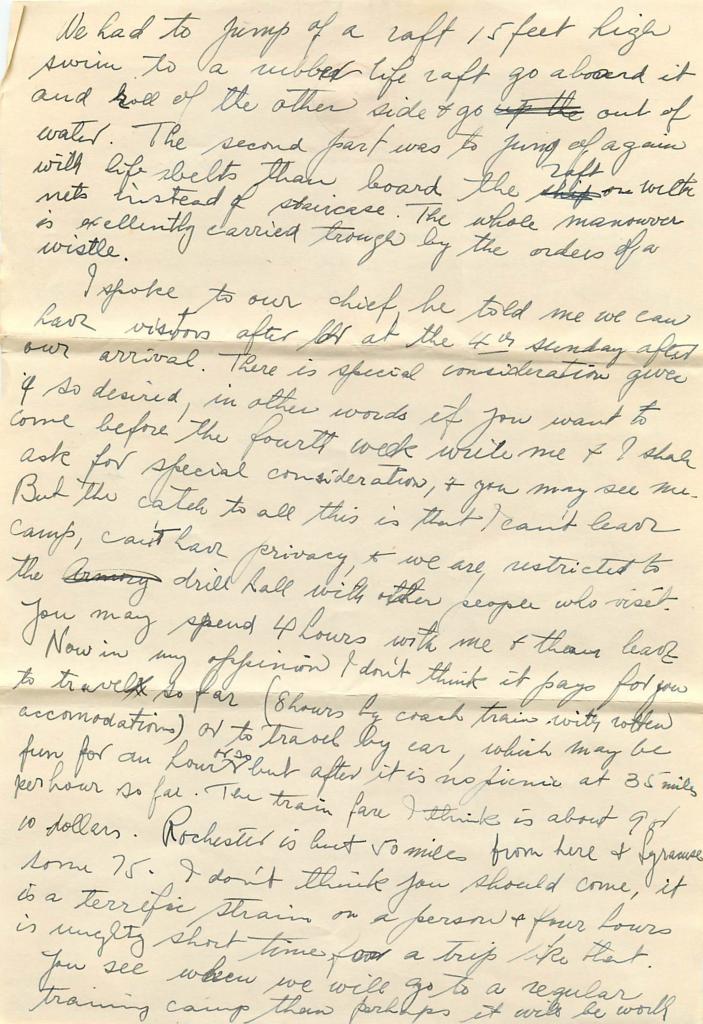 We had to jump of a raft 15 feet high
swim to a rubber life raft go aboard it
and roll of the other side & go up the out of
water. The second part was to jump of again
with life belts than board the ship raft on with
nets instead of staircase. The whole manouver
is excellently carried trough by the orders of a
wistle.
I spoke to our chief, he told me we can
have visitors after at the 4th sunday after
our arrival. There is special consideration given
if so desired, in other words if you want to
come before the fourth week write me & I shall
ask for special consideration, & you may see me.
But the catch to all this is that I can't leave
camp, can't have privacy, & we are restricted to
the Armory drill hall with other people who visit.
You may spend 4 hours with me & than leave
Now in my oppinion I don't think it pays for you
to travel so far (8 hours by coach train with rotten
accomodations) or to travel by car, which may be
fun for an hour or so but after it is no picnic at 35 miles
per hour so far. The train fare I think is about 9 or
10 dollars. Rochester is but 50 miles from here & Syracuse
some 75. I don't think you should come, it
is a terrific strain on a person & four hours
is mighty short time for a trip like that.
You see when we will go to a regular
training camp than perhaps it will be worth